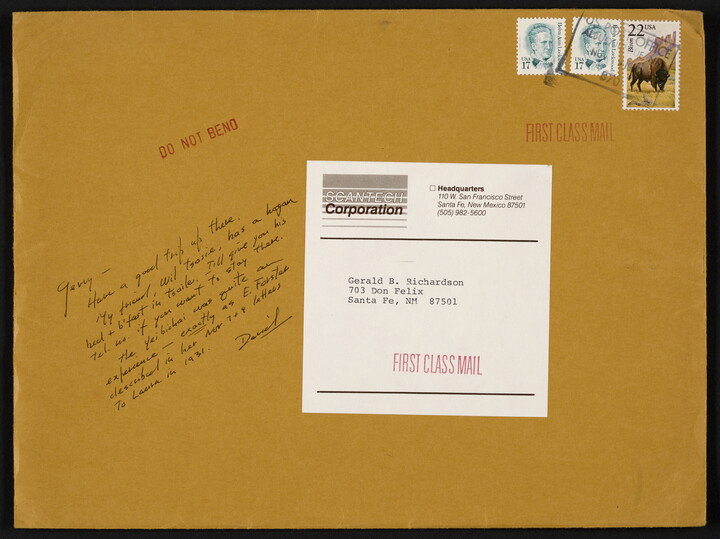 USA 17
USA 17
22 USA
Bison
DO NOT BEND
FIRST CLASS MAIL
SCANTECH
Corporation
Headquarters
110 W. San Francisco Street
Santa Fe, New Mexico 87501
(505) 982-5600
Gerald B. Richardson
703 Don Felix
Santa Fe, NM 87501
FIRST CLASS MAIL
Gerry —
Have a good trip up there.
My friend, Wil Tsosie, has a hogan
bed + b'fast in Tsaile. I'll give you his
Tel. no. if you want to stay there.
The Yeibichai was quite an
experience — exactly as E. Forster
described in her Nov 7 + 9 letters
To Laura in 1931.
David